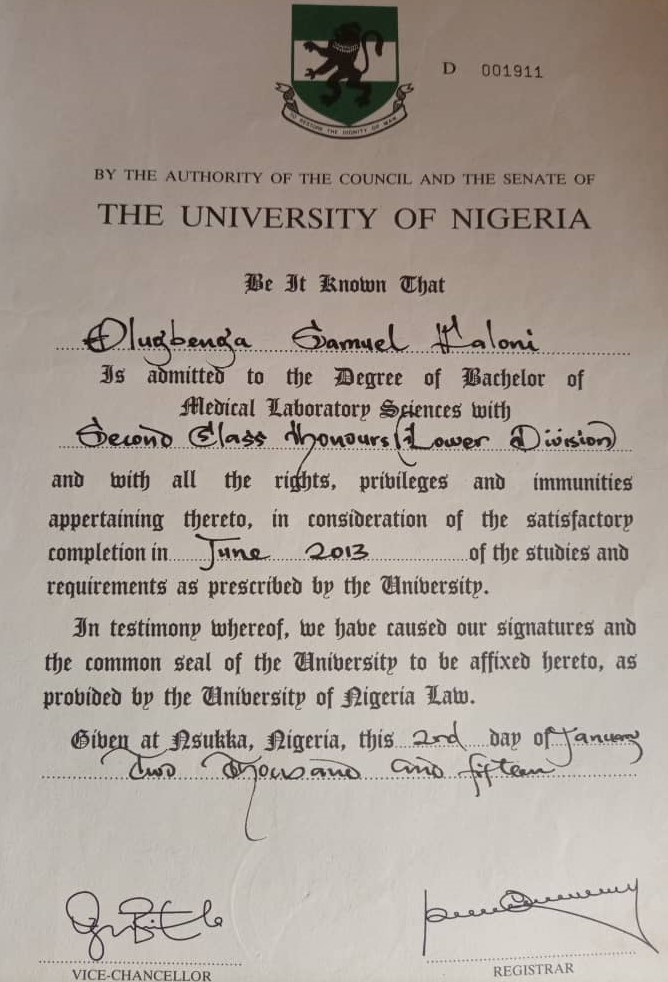 D 001911
TO RESTORE THE DIGNITY OF MAN
BY THE AUTHORITY OF THE COUNCIL AND THE SENATE OF
THE UNIVERSITY OF NIGERIA
Be It Known That
Olugbenga Samuel Haloni
Is admitted to the Degree of Bachelor of
Medical Laboratory Sciences with
Second Class Honours (Lower Division)
and with all the rights, privileges and immunities
appertaining thereto, in consideration of the satisfactory
completion in June 2013 of the studies and
requirements as prescribed by the University.
In testimony whereof, we have caused our signatures and
the common seal of the University to be affixed hereto, as
provided by the University of Nigeria Law.
Given at Nsukka, Nigeria, this 2nd day of January
Two Thousand and fifteen
VICE-CHANCELLOR
REGISTRAR